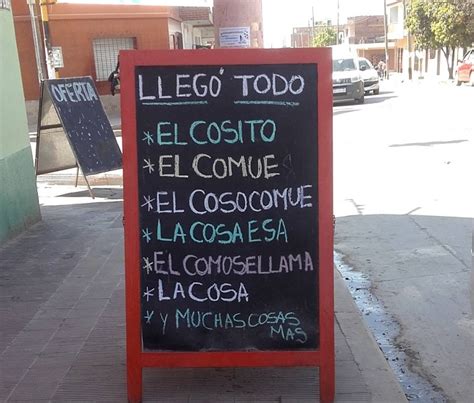 OFERTA
LLEGÓ TODO
*EL COSITO
*EL COMUE
*EL COSOCOMUE
*LA COSA ESA
*EL COMOSELLAMA
*LA COSA
*Y MUCHAS COSAS
MAS